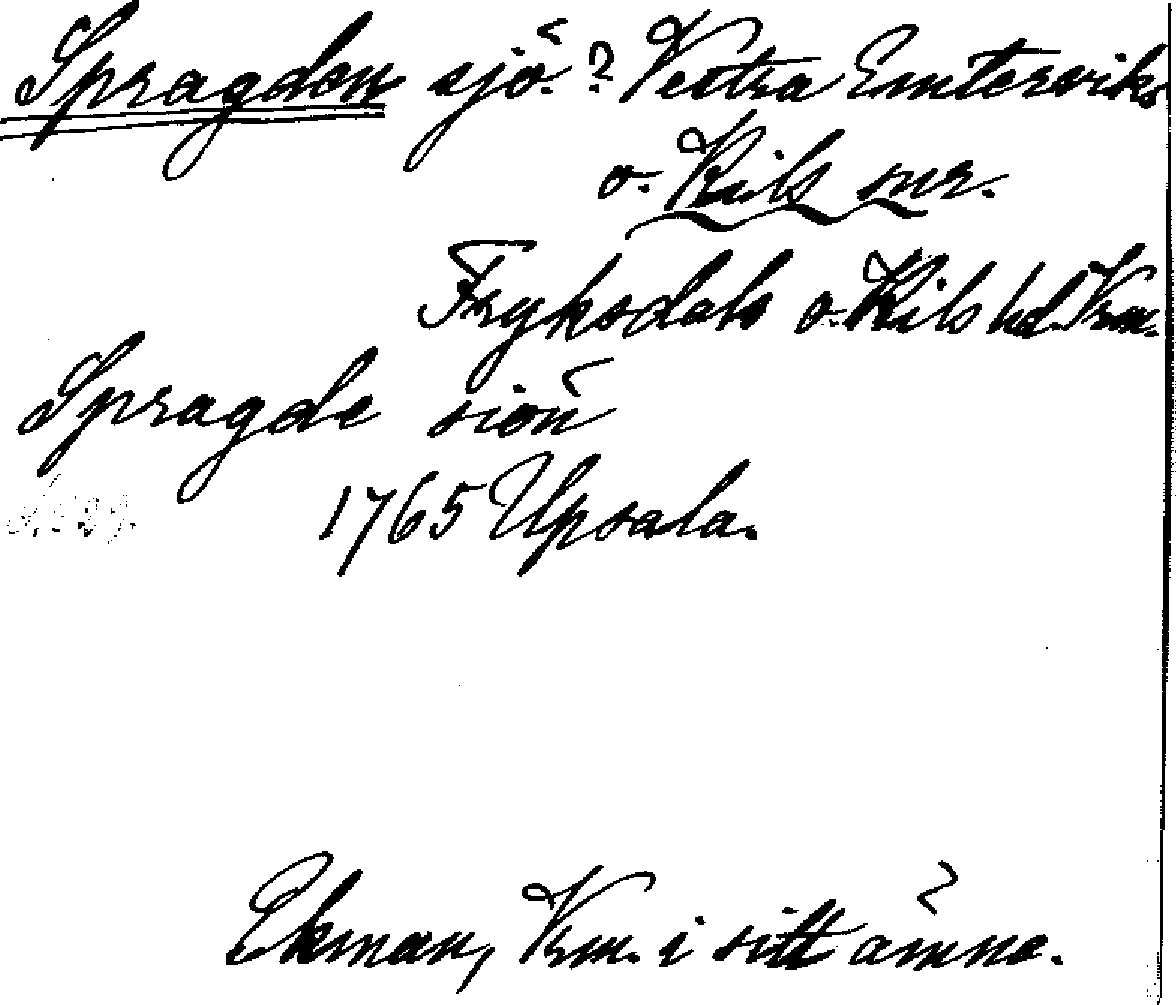 Spragden sjö? Vestra Emterviks
o. Kils snr.
Fryksdals o. Kils hd. Vrm.
Spragde siön
1765 Upsala.
Ekman, Vrm. i sitt ämne.